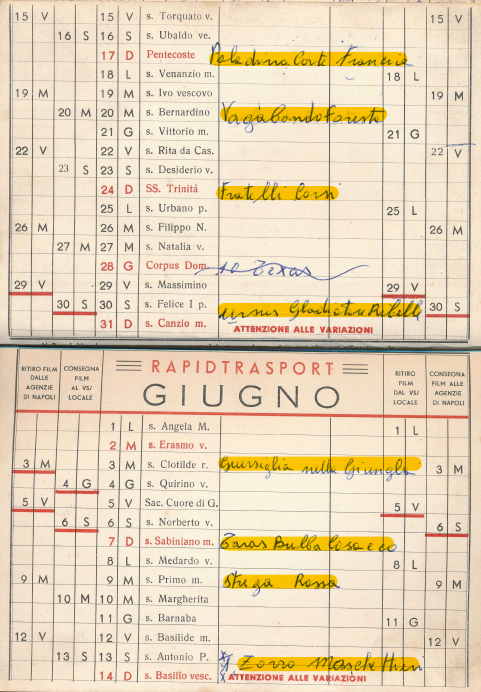 15 V 15 V s. Torquato v. 15 V
16 S 16 S s. Ubaldo ve.
17 D Pentecoste Paladino Corte Francia
18 L s. Venanzio m. 18 L
19 M 19 M s. Ivo vescovo 19 M
20 M 20 M s. Bernardino Vagabondo Foresta
21 G s. Vittorio m. 21 G
22 V 22 V s. Rita da Cas. 22 V
23 S 23 S s. Desiderio v.
24 D SS. Trinitá Fratelli Corsi
25 L s. Urbano p. 25 L
26 M 26 M s. Filippo N. 26 M
27 M 27 M s. Natalia v.
28 G Corpus Dom. Texas
29 V 29 V s. Massimino 29 V
30 S 30 S s. Felice I p. Ursus Gladiatore Ribelle 30 S
31 D s. Canzio m. ATTENZIONE ALLE VARIAZIONI
RAPIDTRASPORT
GIUGNO
RITIRO FILM DALLE AGENZIE DI NAPOLI
CONSEGNA FILM AL VS/ LOCALE
RITIRO FILM DAL VS/ LOCALE
CONSEGNA FILM ALLE AGENZIE DI NAPOLI
1 L s. Angela M. 1 L
2 M s. Erasmo v.
3 M 3 M s. Clotilde r. Guerriglia nella Giungla 3 M
4 G 4 G s. Quirino v.
5 V 5 V Sac. Cuore di G. 5 V
6 S 6 S s. Norberto v. 6 S
7 D s. Sabiniano m. Taras Bulba Cosacco
8 L s. Medardo v. 8 L
9 M 9 M s. Primo m. Strega Rossa 9 M
10 M 10 M s. Margherita
11 G s. Barnaba 11 G
12 V 12 V s. Basilide m. 12 V
13 S 13 S s. Antonio P. Zorro Moschettieri
14 D s. Basilio vesc. ATTENZIONE ALLE VARIAZIONI